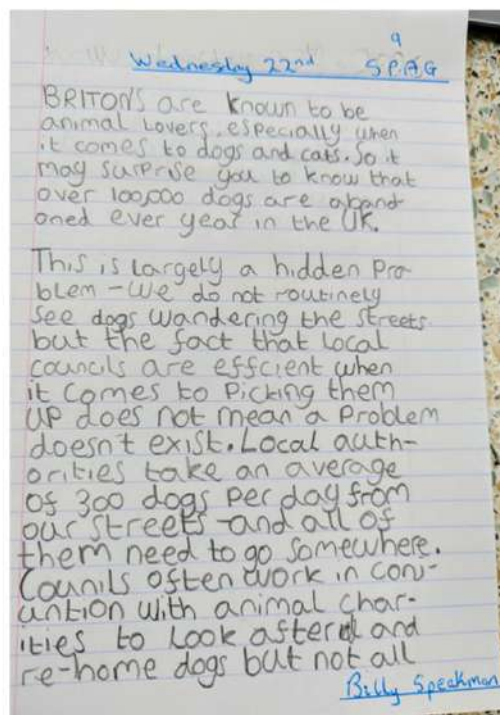 9
Wednesday 22nd S.P.A.G
BRITONS are known to be
animal lovers, especially when
it comes to dogs and cats. So it
may surprise you to know that
over 100,000 dogs are aband
oned ever year in the UK.
This is largely a hidden pro
blem - we do not routinely
see dogs wandering the streets
but the fact that local
councils are effcient when
it comes to picking them
up does not mean a problem
doesn't exist. Local auth-
orities take an average
of 300 dogs per day from
our streets - and all of
them need to go somewhere.
Counils often work in con-
untion with animal char-
ities to look after and
re-home dogs but not all
Billy Speakman